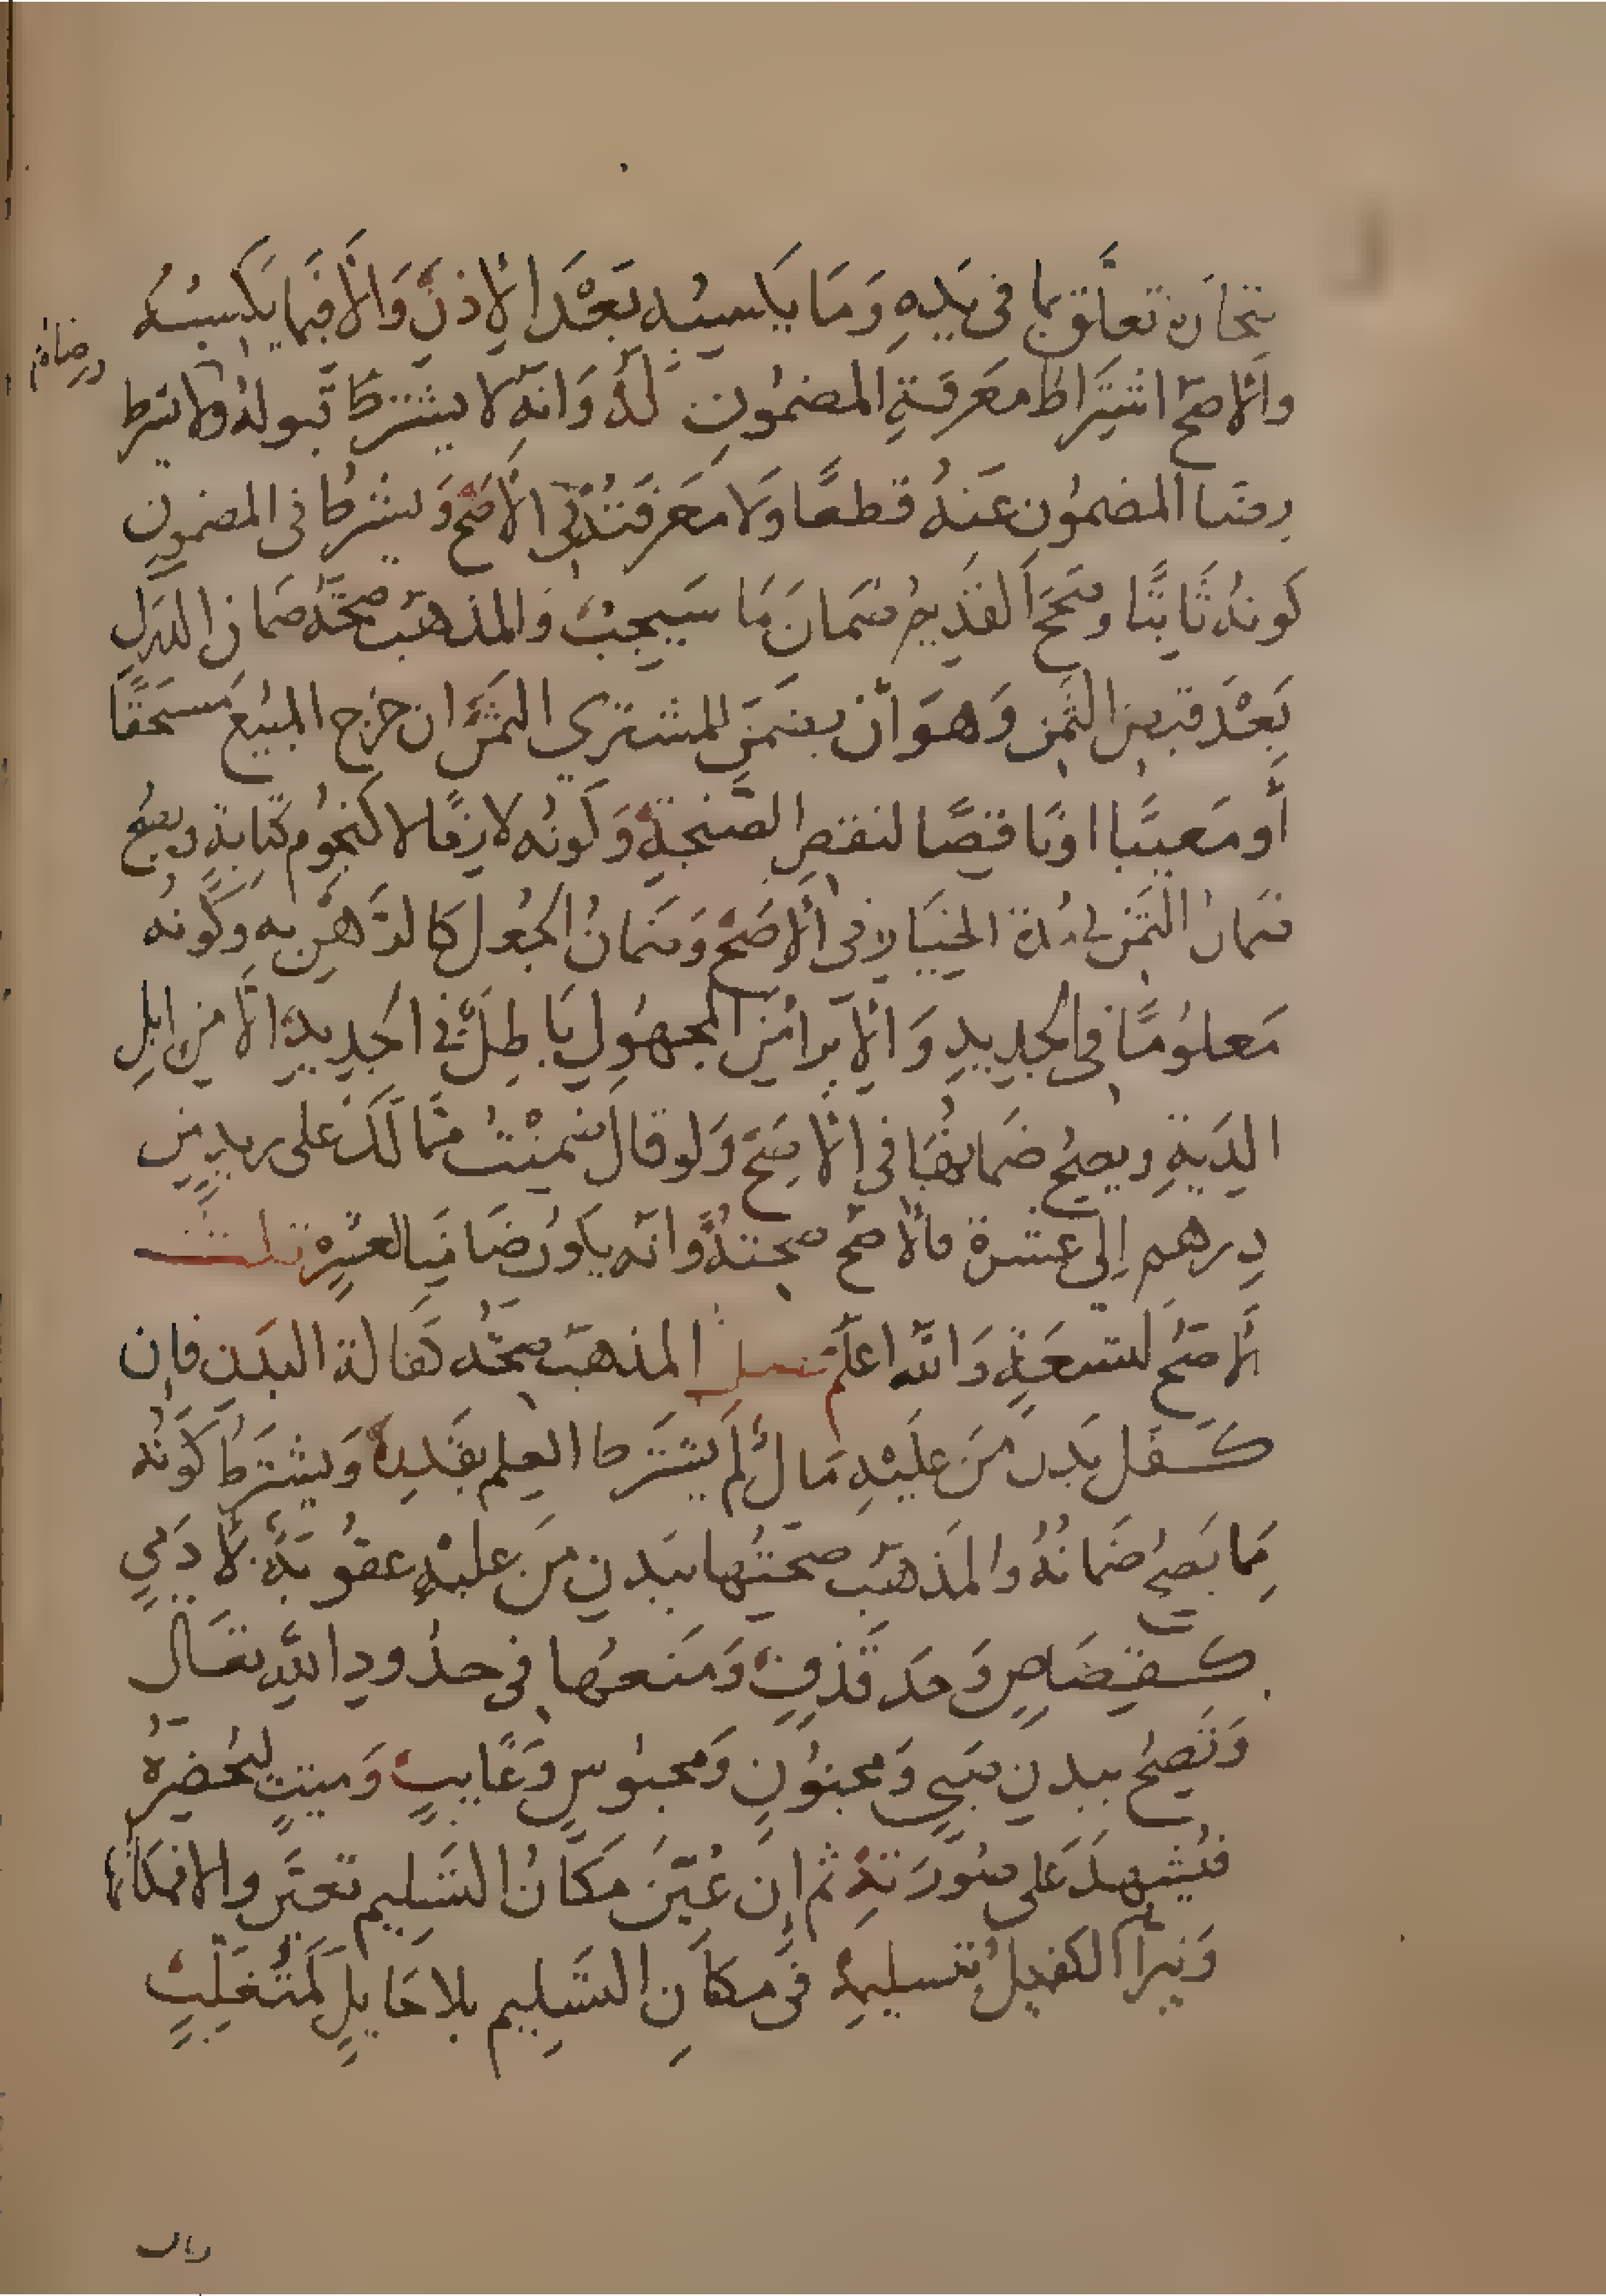 تجارة تعلّق بما في يَدِهِ وَمَا يَكسِبُه بَعْدَ الإذنِ وَالّا فَبِمَا يَكسِبُه
والأصحّ اشتِرَاط مَعرَفةِ المَضمُونِ لَهُ وَانهُ لا يشترَط قَبولهُ ولا
رضَا المضمُونِ عَنهُ قطعًا وَلا مَعَرفَتُهُ في الأصَحّ وَيُشرطُ في المضمونِ
كونهُ ثَابتًا وصَححَ القَدِيمُ ضمَانَ مَا سَيَجبُ وَالمذهَب صحّةُ ضمان الدرَكِ
بَعْدَ قبضِ الثمَنِ وَهوَ أن يضمَنَ للمشتري الثمَنَ ان خرج المبيع مُستحَقًا
أو مَعيبًا او نَاقصًا لنقصِ الصّنجَةِ وَكونُه لازِمًا لا كنجُومِ كِتَابةٍ ويصحُ
ضمانُ الثمَن في مُدة الخيَارِ في الأصَحّ وَضمانُ الجُعل كالرَّهْنِ بهِ وَكونُه
مَعلُومًا في الجدِيدِ وَالإبراءُ مِنَ المجهُولِ بَاطِلٌ في الجدِيدِ الّا من إبلِ
الدِيَةِ ويصحُ ضمانُهَا في الأصَحّ وَلو قال ضَمِنْتُ مما لَكَ على زيدٍ مِن
دِرهم إلى عشرة فالأصَحّ صحتهُ وَانّه يكونُ ضَامنًا لعشرةٍ قلت
الأصَحّ لتسعَةٍ وَاللّه اعلَم فصل المذهَبُ صحّةُ كفالة البَدَن فإن
كَفَل بَدن مَن عَليْهِ مَالٌ لَم يُشتَرط العِلم بقَدرِهُ وَيُشتَرط كَونُه
مِمّا يَصحُ ضمَانُهُ والمَذهَبُ صحّتُها ببَدنِ مَن عليْهِ عقُوبَةٌ لآدَمي
كَقِصَاصٍ وَحَد قَذفٍ وَمَنعهَا في حدُودِ اللّهِ تعَالى
وَتَصحُ ببدنِ صَبيٍ وَمجنُونٍ وَمحبُوسٍ وَغَائبٍ وَميتٍ لِيُحضِرَهُ
فيُشهِدَ عَلى صُورَتهِ ثم إن عُيّنَ مَكانُ التَسليم تَعيّنَ والا فمكانُها
وَيبرَأ الكفيلُ بتسليمِهِ في مكانِ التَسليم بلا حَايلٍ كَمُتَغَلّبٍ